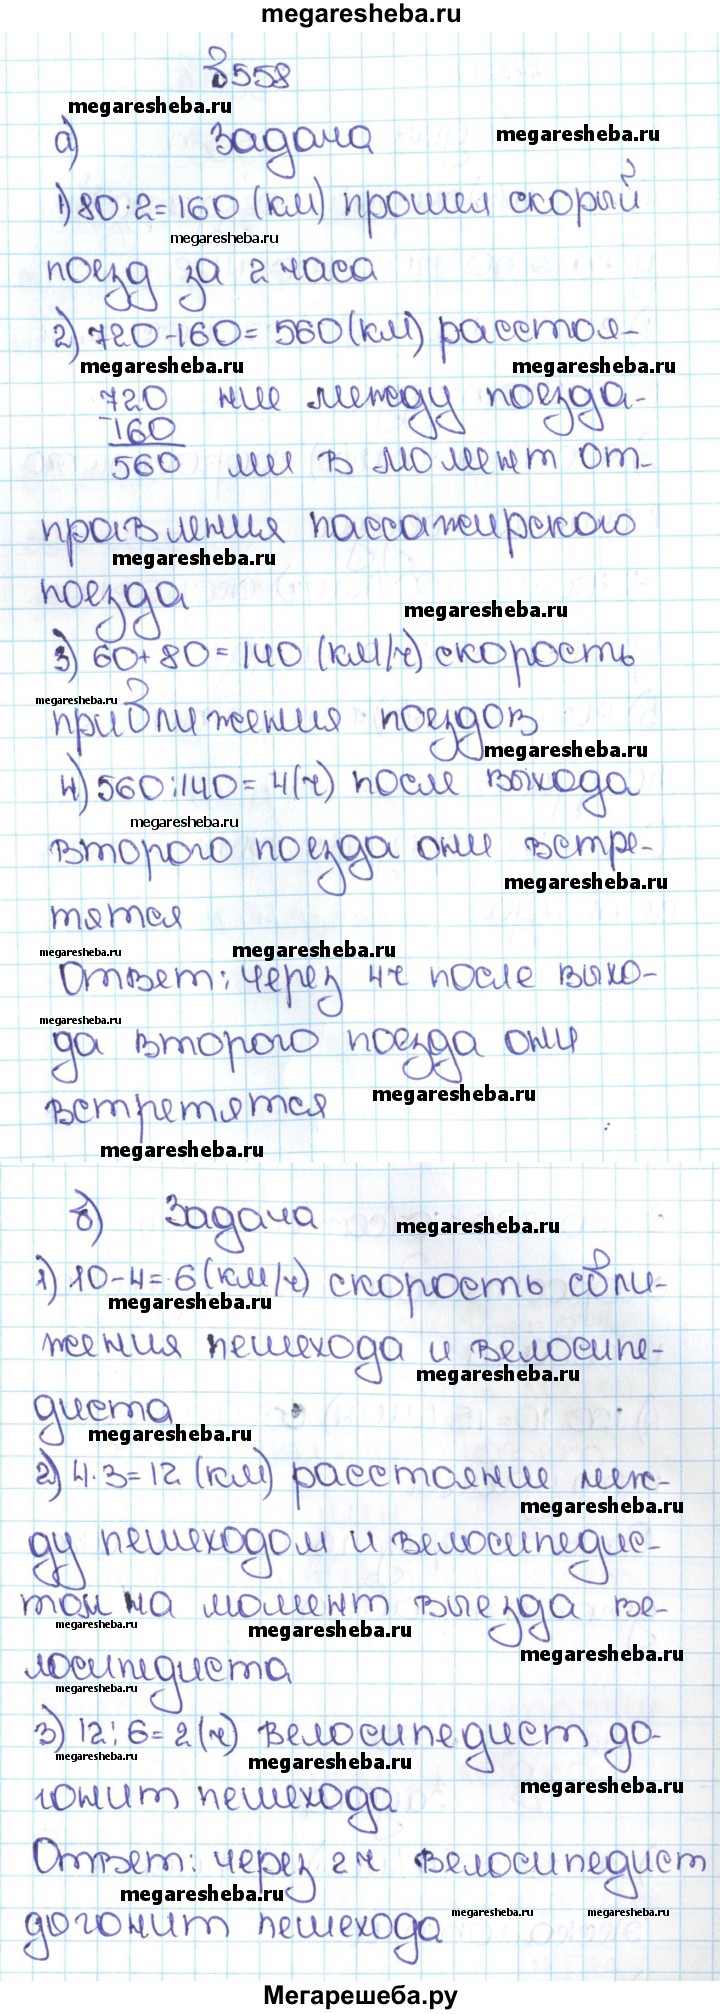 megaresheba.ru
№558
megaresheba.ru
а) Задача megaresheba.ru
1) 80·2=160 (км) прошел скорый
megaresheba.ru
поезд за 2 часа
2) 720-160=560(км) расстоя-
megaresheba.ru megaresheba.ru
720 ние между поезда-
-160
560 ми в момент от-
правления пассажирского
megaresheba.ru
поезда
megaresheba.ru
3) 60+80=140 (км/ч) скорость
megaresheba.ru
приближения поездов
megaresheba.ru
4) 560:140=4(ч) после выхода
megaresheba.ru
второго поезда они встре-
megaresheba.ru
тятся
megaresheba.ru megaresheba.ru
Ответ: через 4ч после выхо-
megaresheba.ru
да второго поезда они
megaresheba.ru
встретятся
megaresheba.ru
б) Задача
megaresheba.ru
1) 10-4=6(км/ч) скорость сбли-
megaresheba.ru
жения пешехода и велосипе-
megaresheba.ru
диста
megaresheba.ru
2) 4·3=12 (км) расстояние меж-
megaresheba.ru
ду пешеходом и велосипедис-
том на момент выезда ве-
megaresheba.ru megaresheba.ru
megaresheba.ru
лосипедиста
megaresheba.ru
3) 12:6=2(ч) велосипедист до-
megaresheba.ru megaresheba.ru
megaresheba.ru
гонит пешехода
Ответ: через 2ч велосипедист
megaresheba.ru
догонит пешехода
megaresheba.ru megaresheba.ru
Мегарешеба.ру